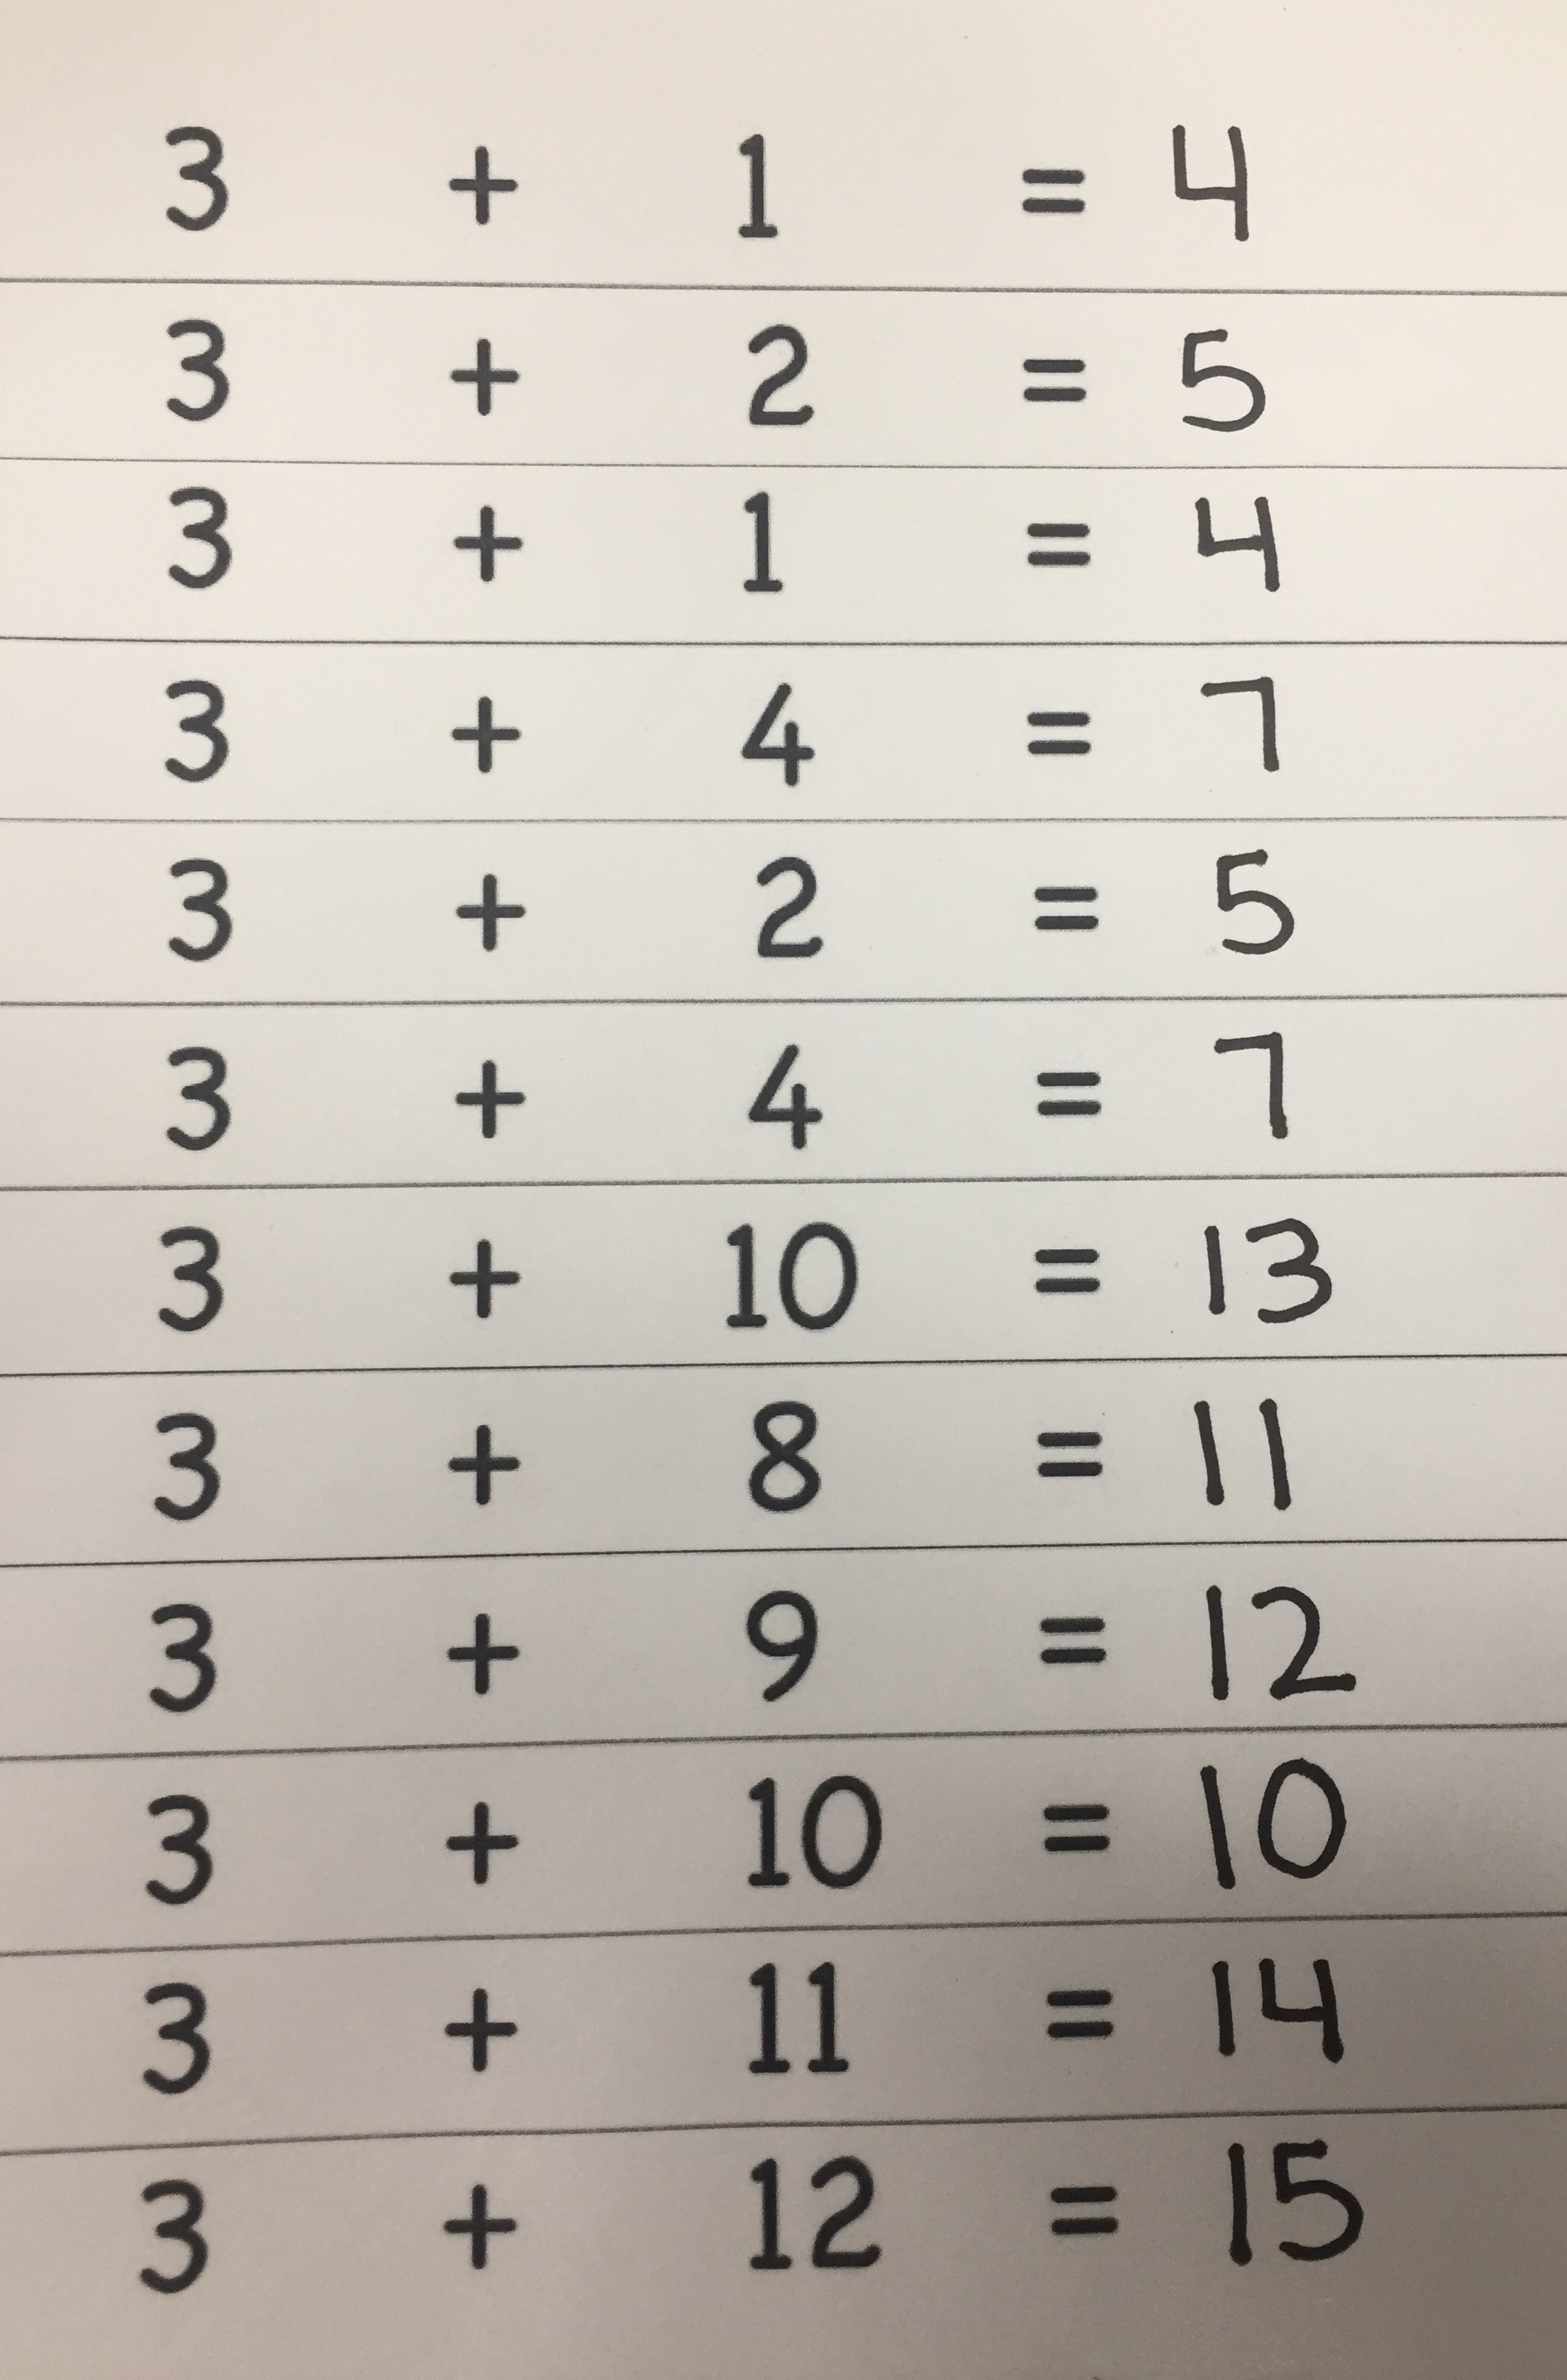 3 + 1 = 4
3 + 2 = 5
3 + 1 = 4
3 + 4 = 7
3 + 2 = 5
3 + 4 = 7
3 + 10 = 13
3 + 8 = 11
3 + 9 = 12
3 + 10 = 10
3 + 11 = 14
3 + 12 = 15